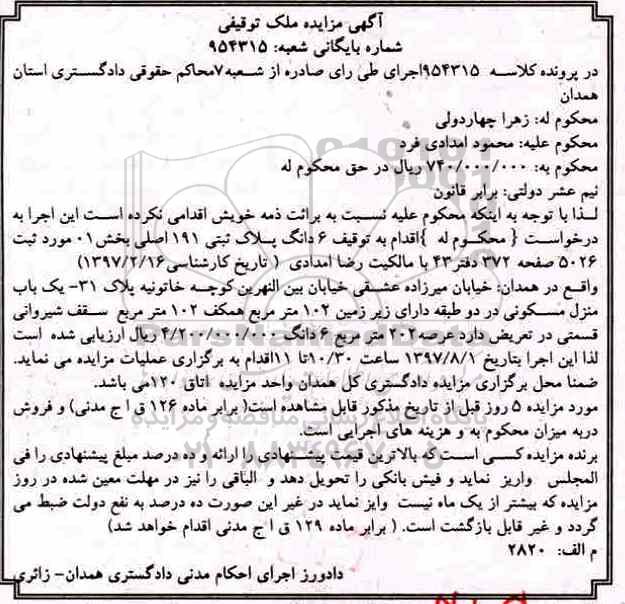 آگهی مزایده ملک توقیفی
شماره بایگانی شعبه: ۹۵۴۳۱۵
در پرونده کلاسه ۹۵۴۳۱۵اجرای طی رای صادره از شعبه۷محاکم حقوقی دادگستری استان
همدان
محکوم له: زهرا چهاردولی
محکوم علیه: محمود امدادی فرد
محکوم به: ۷۴۰/۰۰۰/۰۰۰ ریال در حق محکوم له
نیم عشر دولتی: برابر قانون
لذا با توجه به اینکه محکوم علیه نسبت به برائت ذمه خویش اقدامی نکرده است این اجرا به
درخواست { محکوم له }اقدام به توقیف ۶ دانگ پلاک ثبتی ۱۹۱ اصلی بخش۰۱ مورد ثبت
۵۰۲۶ صفحه ۳۷۲ دفتر۴۳ با مالکیت رضا امدادی ( تاریخ کارشناسی۱۳۹۷/۲/۱۶)
واقع در همدان: خیابان میرزاده عشقی خیابان بین النهرین کوچه خاتونیه پلاک ۳۱- یک باب
منزل مسکونی در دو طبقه دارای زیر زمین ۱۰۲ متر مربع همکف ۱۰۲ متر مربع سقف شیروانی
قسمتی در تعریض دارد عرصه۲۰۲ متر مربع ۶ دانگ ۴/۲۰۰/۰۰۰/۰۰۰ ریال ارزیابی شده است
لذا این اجرا بتاریخ ۱۳۹۷/۸/۱ ساعت ۱۰/۳۰تا ۱۱اقدام به برگزاری عملیات مزایده می نماید.
ضمنا محل برگزاری مزایده دادگستری کل همدان واحد مزایده اتاق ۱۲۰می باشد.
مورد مزایده ۵ روز قبل از تاریخ مذکور قابل مشاهده است( برابر ماده ۱۲۶ ق ا ج مدنی) و فروش
دربه میزان محکوم به و هزینه های اجرایی است.
برنده مزایده کسی است که بالاترین قیمت پیشنهادی را ارائه و ده درصد مبلغ پیشنهادی را فی
المجلس واریز نماید و فیش بانکی را تحویل دهد و الباقی را نیز در مهلت معین شده در روز
مزایده که بیشتر از یک ماه نیست وایز نماید در غیر این صورت ده درصد به نفع دولت ضبط می
گردد و غیر قابل بازگشت است. ( برابر ماده ۱۲۹ ق ا ج مدنی اقدام خواهد شد)
م الف: ۲۸۲۰
دادورز اجرای احکام مدنی دادگستری همدان- زائری